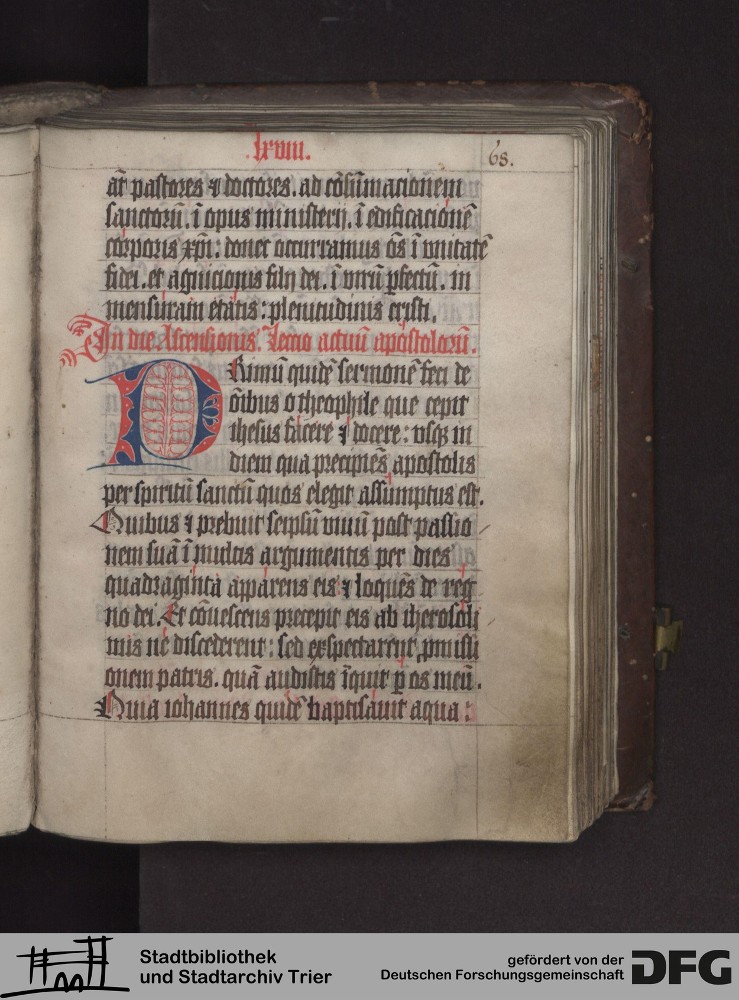 .lxviii. 68.
at̄ pastores ⁊ doctores. ad cōsūmacionem
sanctorū. ī opus ministerij. ī edificacionē
corporis xp̄i: donec occurramus oēs ī vnitatē
fidei. et agnicionis filij dei. ī virū ꝑfectū. in
mensuram etatis: plenitudinis cristi.
In die Ascensionis. Lectio actuū apostolorū.
PRimū quidē sermonē feci de
oībus o theophile que cepit
ihesus facere ⁊ docere: vsqꝫ in
diem qua precipiēs apostolis
per spiritū sanctū quos elegit assumptus est.
Quibus ⁊ prebuit seipsū viuū post passio
nem suā ī multis argumentis per dies
quadraginta apparens eis ⁊ loquēs de reg
no dei. Et cōuescens precepit eis ab iherosoli
mis ne discederent: sed exspectarent ꝓmissi
onem patris. quā audistis īquit ꝑ os meū.
Quia iohannes quidē baptisauit aqua:
Stadtbibliothek
und Stadtarchiv Trier
gefördert von der
Deutschen Forschungsgemeinschaft DFG